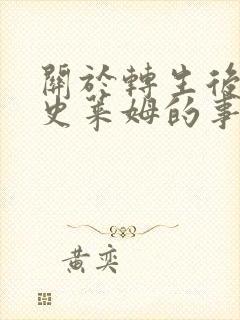 關於轉生後
史萊姆的事
黃奕